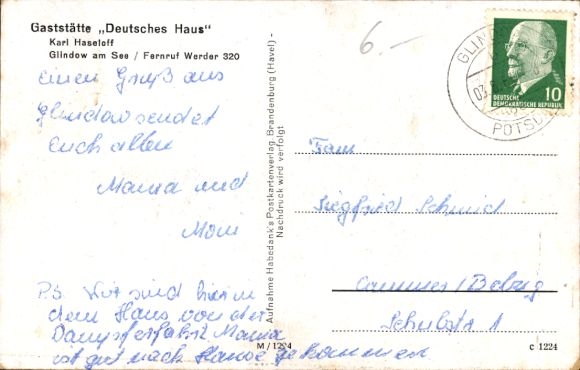 Gaststätte „Deutsches Haus"
Karl Haseloff
Glindow am See / Fernruf Werder 320
einen Gruß aus
Glindow sendet
Euch allen
Mama und
Moni
P.S. Wir sind hier in
dem Haus von der
Dampferfahrt Mama
ist gut nach Hause gekommen
M/1224
Aufnahme Habedank's Postkartenverlag, Brandenburg (Havel) -
Nachdruck wird verfolgt
6.-
GLINDOW
03.
POTSD
DEUTSCHE
DEMOKRATISCHE REPUBLIK
10
Fam
Siegfried Schmid
Cammer/Belzig
Schulstr 1
c 1224